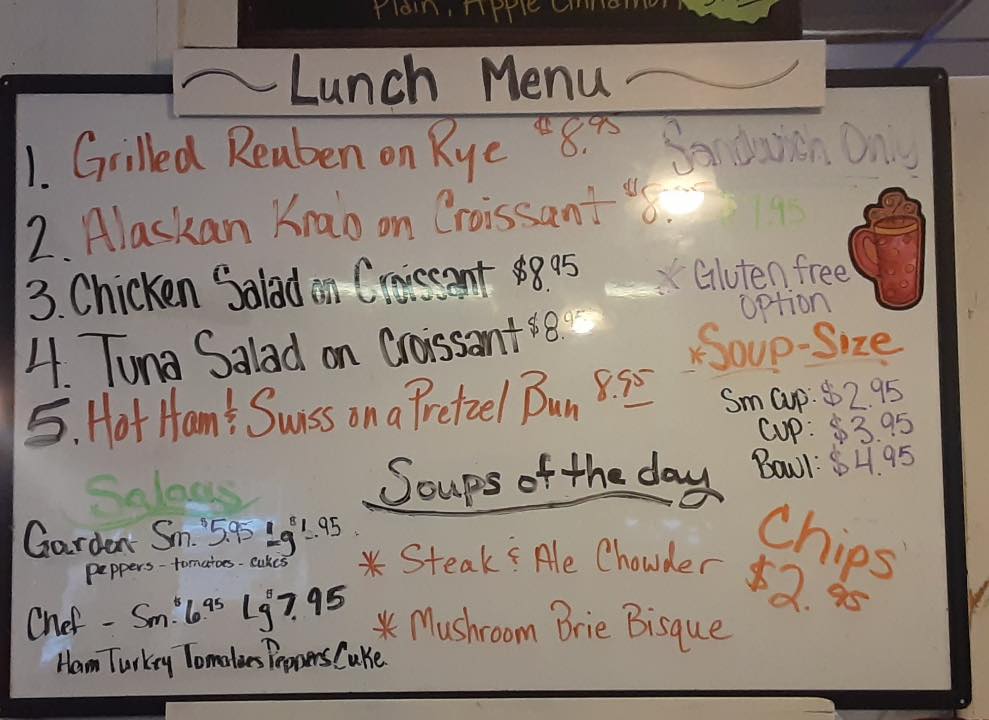 Plain, Apple Cinnamon
Lunch Menu
1. Grilled Reuben on Rye $8.95
2. Alaskan Krab on Croissant $8.
3. Chicken Salad on Croissant $8.95
4. Tuna Salad on Croissant $8.95
5. Hot Ham & Swiss on a Pretzel Bun 8.95
Sandwich Only
.95
* Gluten free
option
*Soup-Size
Sm Cup: $2.95
Cup: $3.95
Bowl: $4.95
Salads
Garden Sm. $5.95 Lg $ .95
peppers - tomatoes - cukes
Chef - Sm. $6.95 Lg $7.95
Ham Turkey Tomatoes Peppers Cuke
Soups of the day
* Steak & Ale Chowder
* Mushroom Brie Bisque
Chips
$2.95